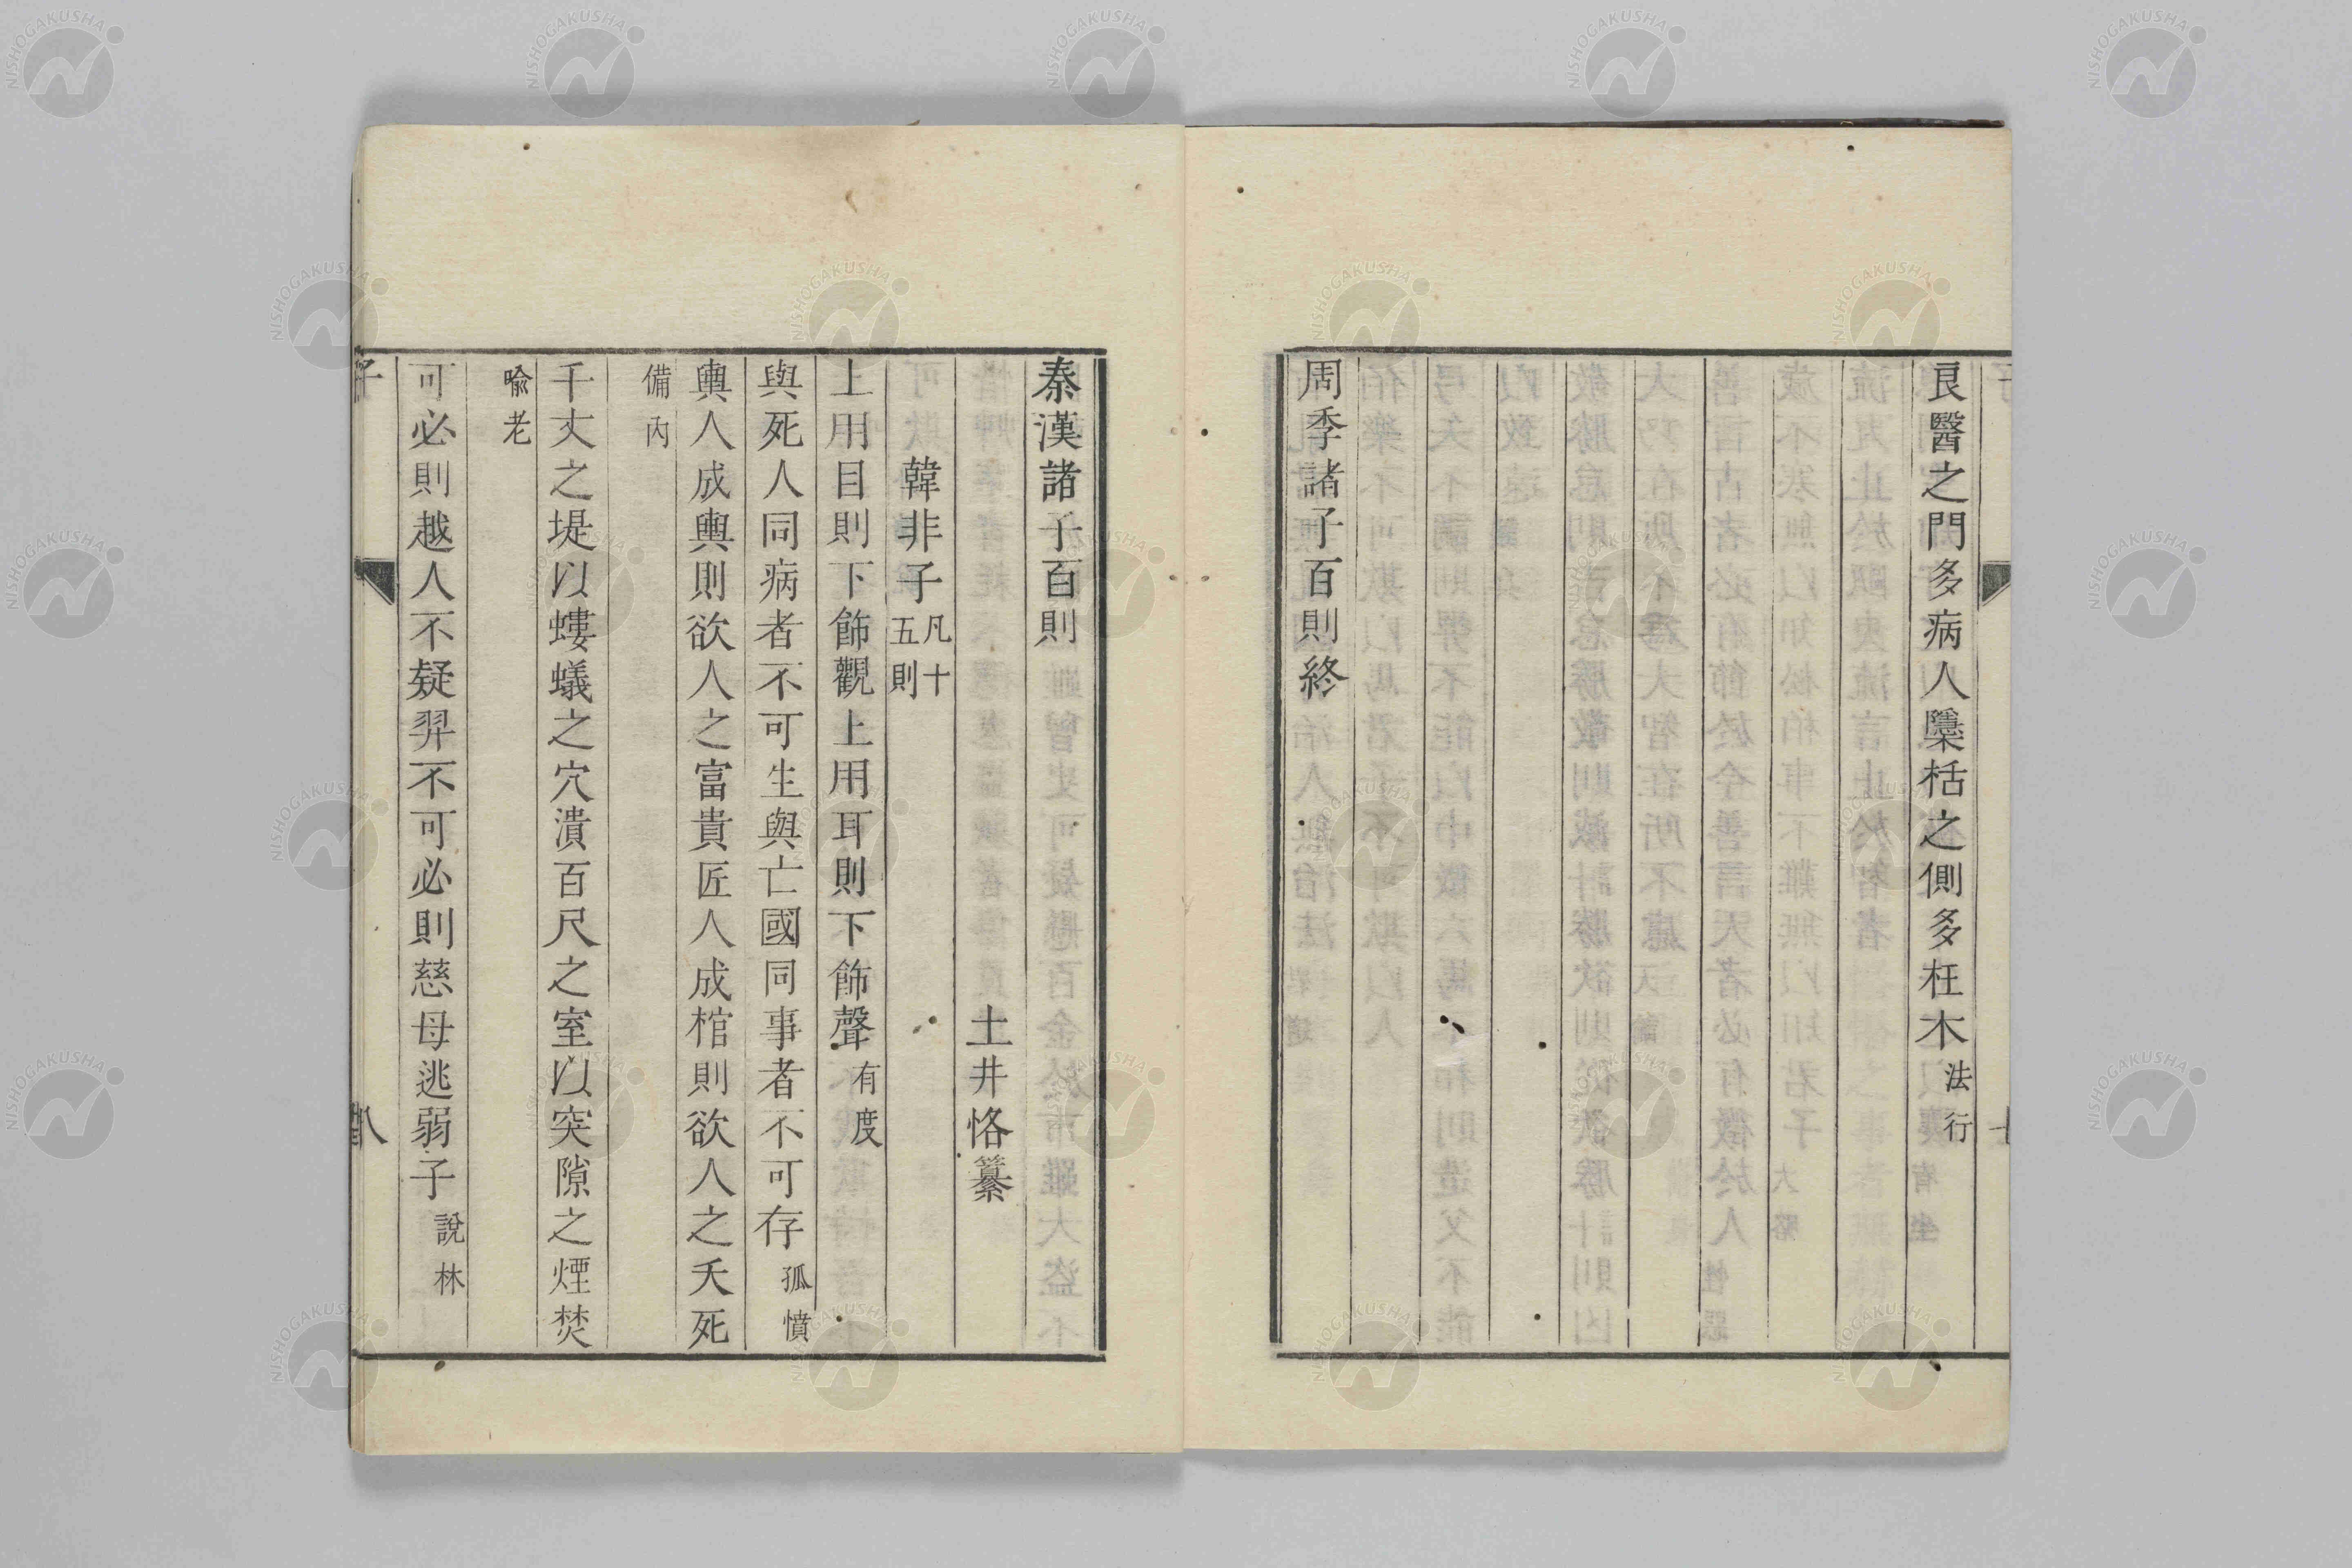 良醫之門多病人檃栝之側多枉木法行
周季諸子百則終
秦漢諸子百則
土井恪纂
韓非子凡十五則
上用目則下飾觀上用耳則下飾聲有度
與死人同病者不可生與亡國同事者不可存孤憤
輿人成輿則欲人之富貴匠人成棺則欲人之夭死
備內
千丈之堤以螻蟻之穴潰百尺之室以突隙之煙焚
喩老
可必則越人不疑羿不可必則慈母逃弱子說林
子
八
NISHOGAKUSHA